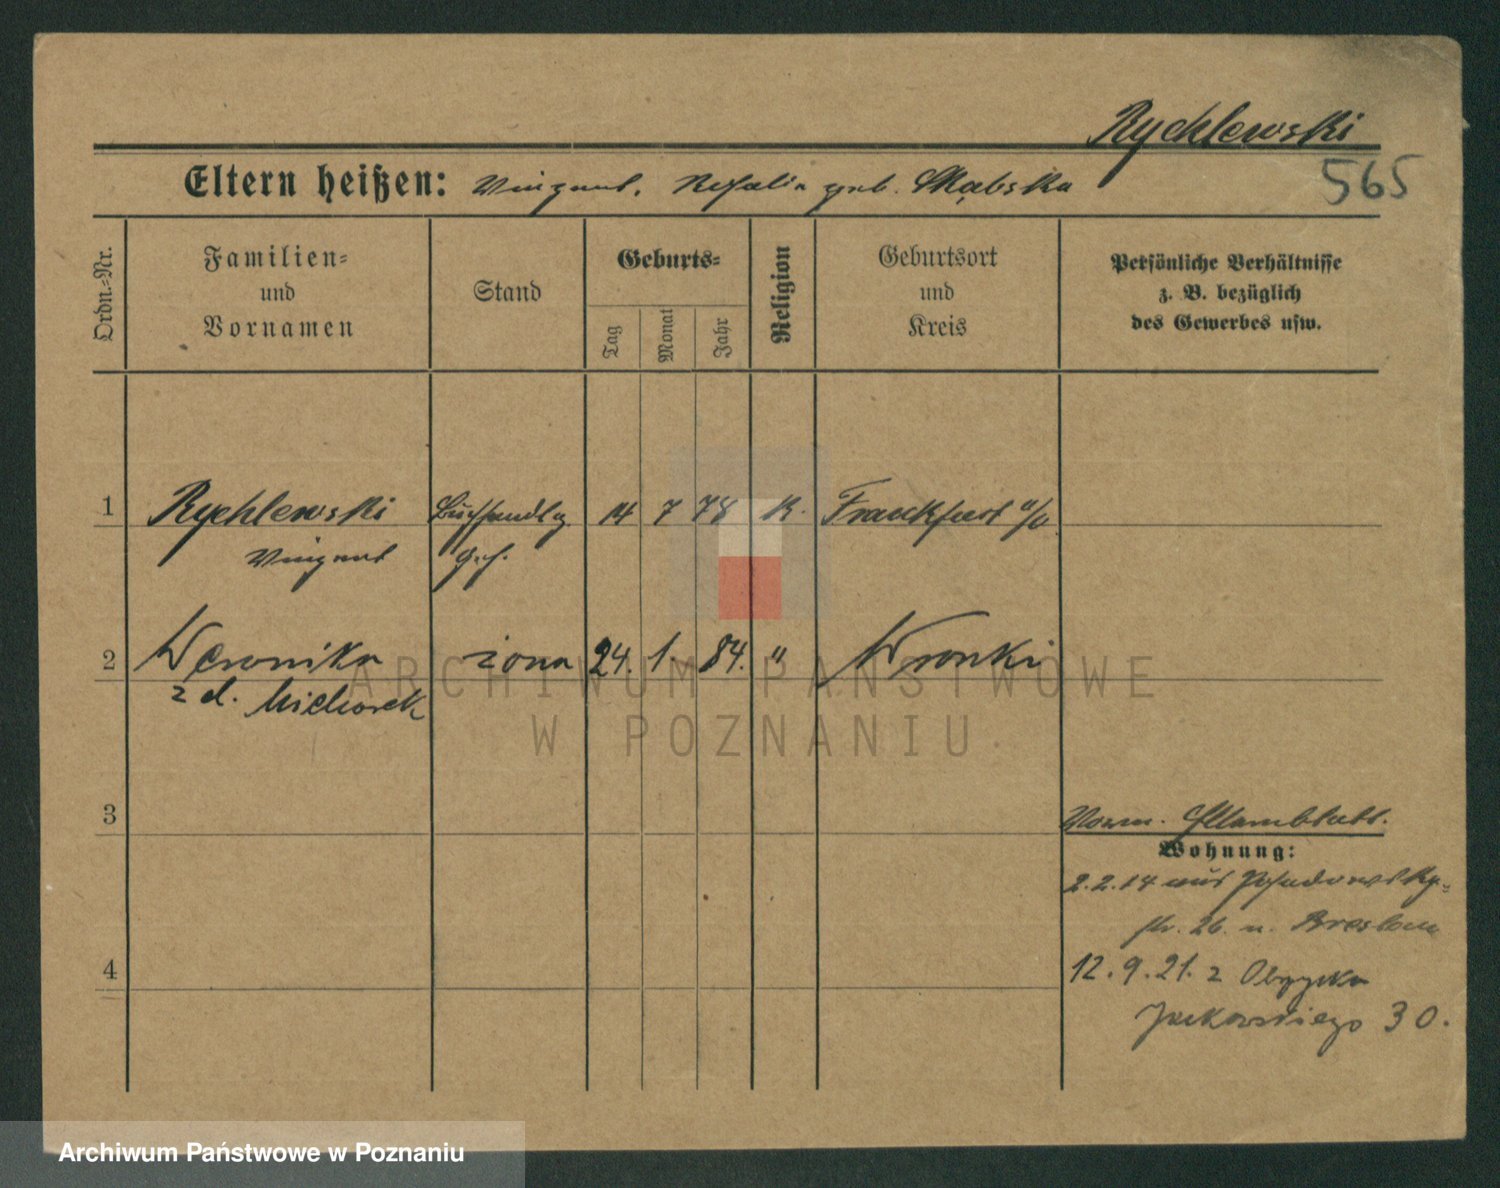 Rychlewski
565
Eltern heißen: Vinzent, Rosalie geb. Skąbska
Ordn.-Nr.
Familien- und Vornamen
Stand
Geburts-
Tag
Monat
Jahr
Religion
Geburtsort und Kreis
Persönliche Verhältnisse
z. B. bezüglich
des Gewerbes usw.
1 Rychlewski Buchhandlg 14 7 78 K. Frankfurt a/O
Vinzent Geh.
2 Weronika żona 24. 1. 84. " Wronki
z d. Michorek
ARCHIWUM PAŃSTWOWE
W POZNANIU
3
Vorm. Stammblatt.
Wohnung:
2.2.14 aus Posadowsky-
str. 26 n. Breslau
4
12.9.21. z Obrzycka
Jackowskiego 30.
Archiwum Państwowe w Poznaniu